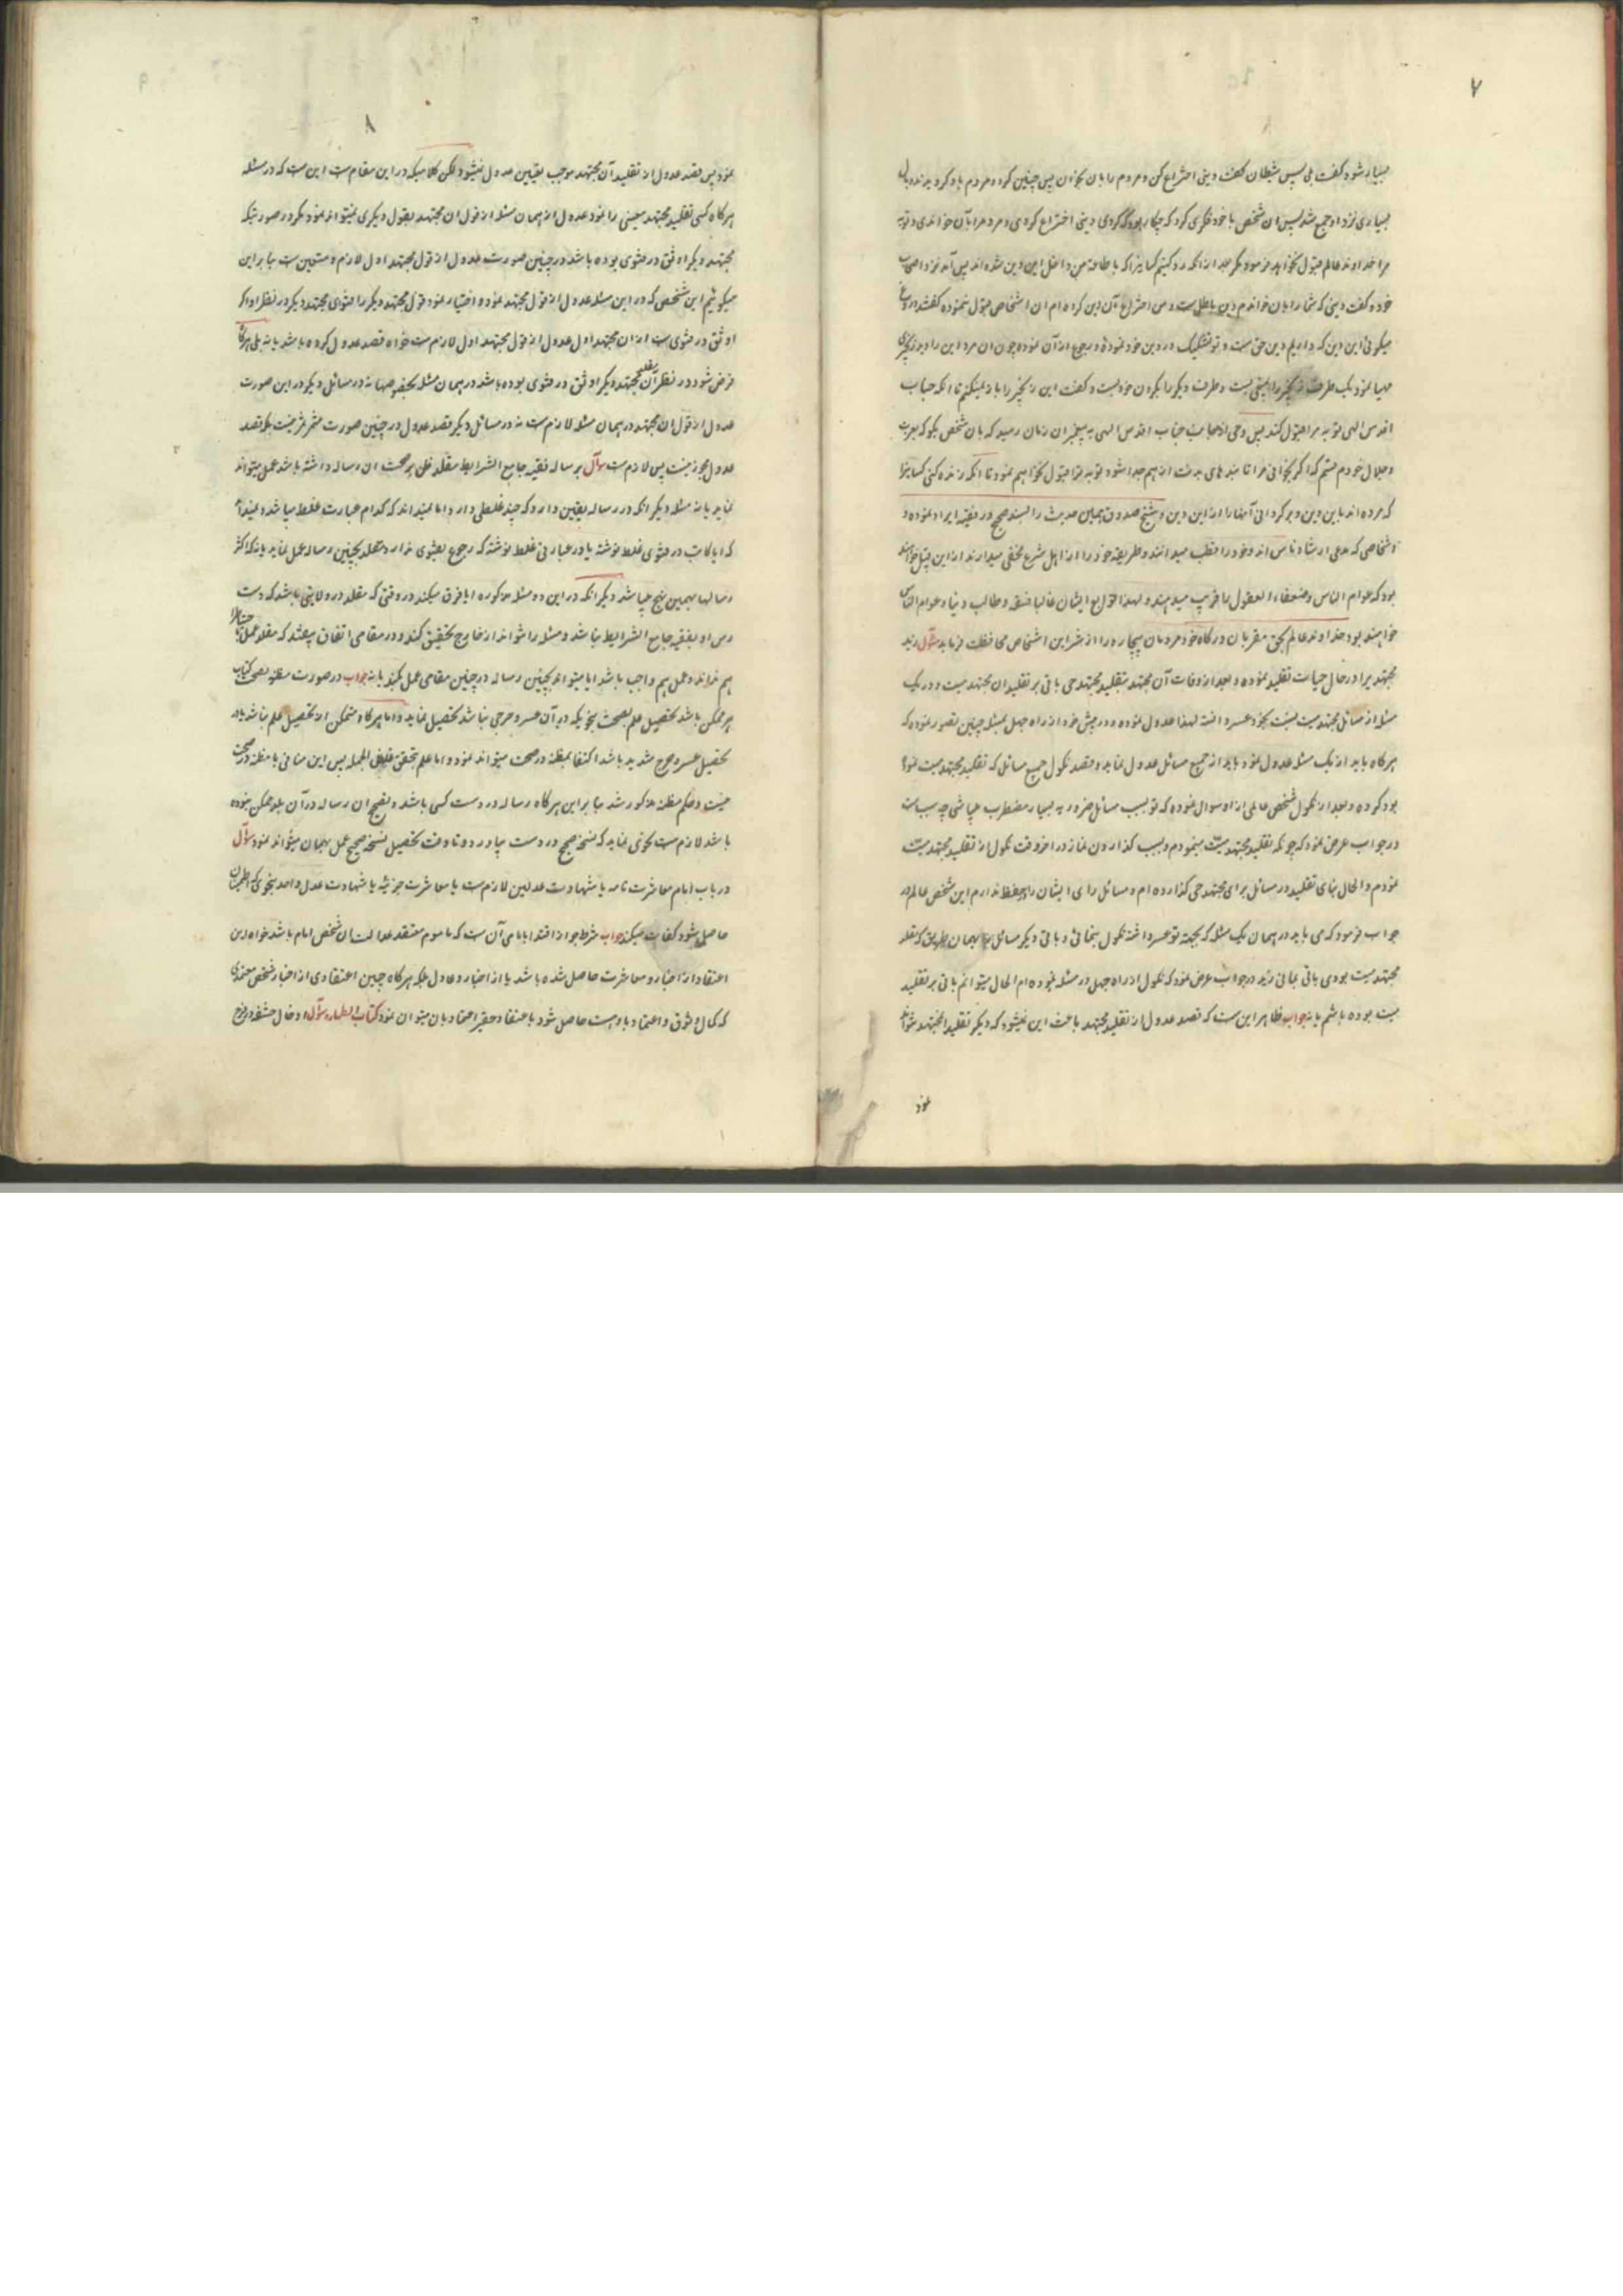 ۷
بسیار شود گفت بلی پس شیطان گفت دینی اختراع کن و مردم را بان بخوان پس چنین کرد و مردم باو گرویدند و مال
بسیاری نزد او جمع شد پس ان شخص با خود فکری کرد که چکار بود که کردی دینی اختراع کردی و مردم را بآن خواندی و توبه
مرا خداوند عالم قبول نخواهد فرمود مگر بعد از انکه رد کنیم کسانیرا که باطاعة من داخل این دین شده اند پس آمد نزد اصحاب
خود و گفت دینی که شما را بان خواندم دین باطل است و من اختراع آن دین کرده ام ان اشخاص قبول ننموده گفتند دروغ
میگوئی این دین که داریم دین حق است و تو تشکیک در دین خود نمودۀ و رجوع از آن نموده چون ان مرد این را دید زنجیری
مهیا نمود یک طرف زنجیر را بمیخی بست و طرف دیگر را بگردن خود بست و گفت این زنجیر را باز نمیکنم تا انکه جناب
اقدس الهی توبه مرا قبول کند پس وحی از جانب جناب اقدس الهی به پیغمبر ان زمان رسید که بان شخص بگو که بعزت
و جلال خودم قسم که اگر بخوانی مرا تا بندهای بدنت از هم جدا شود توبه ترا قبول نخواهم نمود تا انکه زنده کنی کسانیرا
که مرده اند باین دین و برگردانی آنها را از این دین و شیخ صدوق همین حدیث را بسند صحیح در فقیه ایراد نموده و
اشخاصی که مدعی ارشاد ناس اند و خود را قطب میدانند و طریقه خود را از اهل شرع مخفی میدارند از این قبیل خواهند
بود که عوام الناس و ضعفاء العقول را فریب میدهند و لهذا توابع ایشان غالبا فسقه و طالب دنیا و عوام الناس
خواهند بود خداوند عالم بحق مقربان درگاه خود مردمان بیچاره را از شر این اشخاص محافظت فرماید سؤال زید
مجتهدیرا در حال حیات تقلید نموده و بعد از وفات آن مجتهد بتقلید مجتهد حی باقی بر تقلید ان مجتهد میت و در یک
مسئله از مسائل مجتهد میت نسبت بخود عسر دانسته لهذا عدول نموده و در پیش خود از راه جهل بمسئله چنین تصور نموده که
هرگاه باید از یک مسئله عدول نمود باید از جمیع مسائل عدول نماید و قصد نکول جمیع مسائل که تقلید مجتهد میت نموده
بود کرده و بعد از نکول شخص عالمی از او سوال نموده که تو بسبب مسائل ضروریه بسیار مضطرب میباشی چه سبب است
در جواب عرض نمود که چونکه تقلید مجتهد میّت مینمودم و بسبب گذاردن نماز در اخر وقت نکول از تقلید مجتهد میّت
نمودم و الحال بنای تقلید در مسائل برای مجتهد حی گذارده ام و مسائل رای ایشان را بحفظ ندارم این شخص عالم در
جواب فرمود که می باید در همان یک مسئله که بجهة تو عسر داشته نکول بنمائی و باقی دیگر مسائل را بهمان طریق که مقلد
مجتهد میت بودی باقی بمانی زید در جواب عرض نمود که نکول از راه جهل در مسئله نموده ام الحال میتوانم باقی بر تقلید
میت بوده باشم یا نه جواب ظاهر این است که قصد عدول از تقلید مجتهد باعث این نمیشود که دیگر تقلید ان مجتهد نتواند
نمود
۸
نمود پس قصد عدول از تقلید آن مجتهد موجب تعیین عدول نمیشود و لکن کلامیکه در این مقام است این است که در مسئله
هرگاه کسی تقلید مجتهد معینی را نمود عدول از همان مسئله از قول ان مجتهد بقول دیگری نمیتواند نمود مگر در صورتیکه
مجتهد دیگر اوثق در فتوی بوده باشد در چنین صورت عدول از قول مجتهد اول لازم و متعین است بنابراین
میگوئیم این شخصی که در این مسئله عدول از قول مجتهد نمود و اختیار نمود قول مجتهد دیگر را فتوای مجتهد دیگر در نظر او اگر
اوثق در فتوی است از ان مجتهد اول عدول از قول مجتهد اول لازم است خواه قصد عدول کرده باشد یا نه بلی هرگاه
فرض شود در نظر آن مقلد مجتهد دیگر اوثق در فتوی بوده باشد در همان مسئله بخصوصها نه در مسائل دیگر در این صورت
عدول از قول ان مجتهد در همان مسئله لازم است نه در مسائل دیگر قصد عدول در چنین صورت مثمر ثمر نیست بلکه قصد
عدول مجوز نیست پس لازم است سؤال بر ساله فقیه جامع الشرایط مقلد ظن بر صحت ان رساله داشته باشد عمل میتواند
نماید یا نه مسئله دیگر انکه در رساله یقین دارد که چند غلطی دارد اما نمیداند که کدام عبارت غلط میباشد و نمیداند
که ایا کاتب در فتوی غلط نوشته یا در عبارتی غلط نوشته که رجوع بفتوی ندارد مقلد بچنین رساله عمل نماید یا نه که اکثر
رسالها بهمین نهج میباشد دیگر انکه در این دو مسئله مذکوره ایا فرق میکند در وقتی که مقلد در ولایتی باشد که دست
رس او بفقیه جامع الشرایط نباشد و مسئله را نتواند از خارج تحقیق کند و در مقامی اتفاق بیفتد که مقلد عمل باحتیاط
هم نداند و عمل هم واجب باشد ایا میتواند بچنین رساله در چنین مقامی عمل بکند یا نه جواب در صورت مظنه بصحت کتاب
هر ممکن باشد تحصیل علم بصحت بنحویکه در آن عسر و حرجی نباشد تحصیل نماید و اما هرگاه متمکن از تحصیل علم نباشد یا در
تحصیل عسر و حرج شدید باشد اکتفا بمظنه در صحت میتواند نمود و اما علم بتحقق غلط فی الجمله پس این منافی با مظنه در صحت
نیست و حکم مظنه مذکور شد بنابراین هرگاه رساله در دست کسی باشد و تصحیح ان رساله در آن بلد ممکن نبوده
باشد لازم است نحوی نماید که نسخه صحیح در دست بیاورد و تا وقت تحصیل نسخه صحیح عمل بهمان میتواند نمود سؤال
در باب امام معاشرت تامه یا شهادت عدلین لازم است یا معاشرت جزئیه یا شهادت عدل واحد بنحوی که اطمینان
حاصل شود کفایت میکند جواب شرط جواز اقتدا بامامی آن است که ماموم معتقد عدالت ان شخص امام باشد خواه این
اعتقاد از اخبار و معاشرت حاصل شده باشد یا از اخبار دو عادل بلکه هرگاه چنین اعتقادی از اخبار شخص معتمدی
که کمال وثوق و اعتماد باو هست حاصل شود باعتقاد حقیر اعتماد بان میتوان نمود کتاب الطهاره سؤال ادخال حشفه در فرج